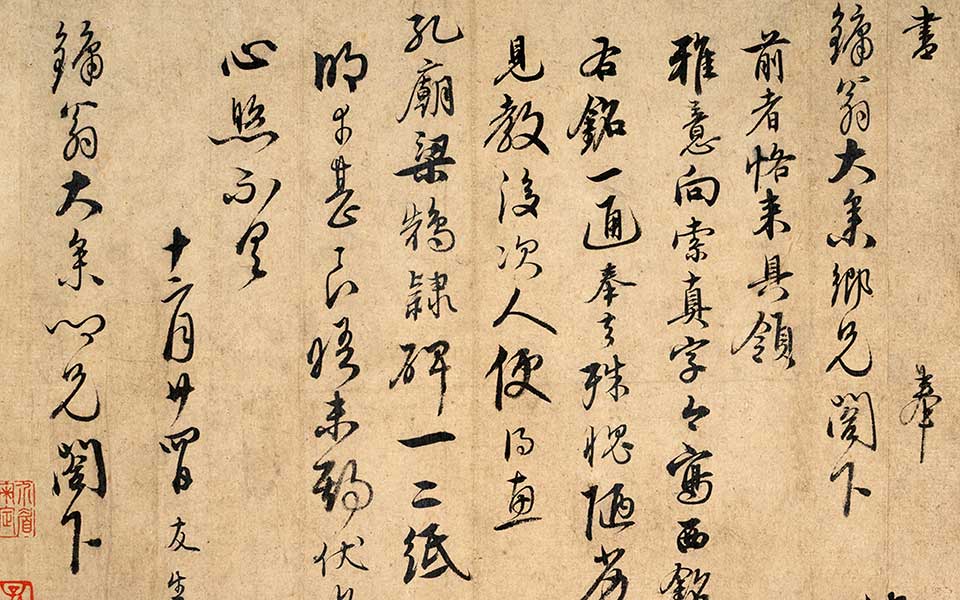 書 奉
鏞翁大參鄉兄閣下
前者恪来具領
雅意向索真字今寫西銘
右銘一通奉去殊愧陋劣
見教後次人便得惠
孔廟梁鵠隸碑一二紙
明幸甚良晤未期伏
心照不具
十二月廿四日友生
鏞翁大參鄉兄閣下